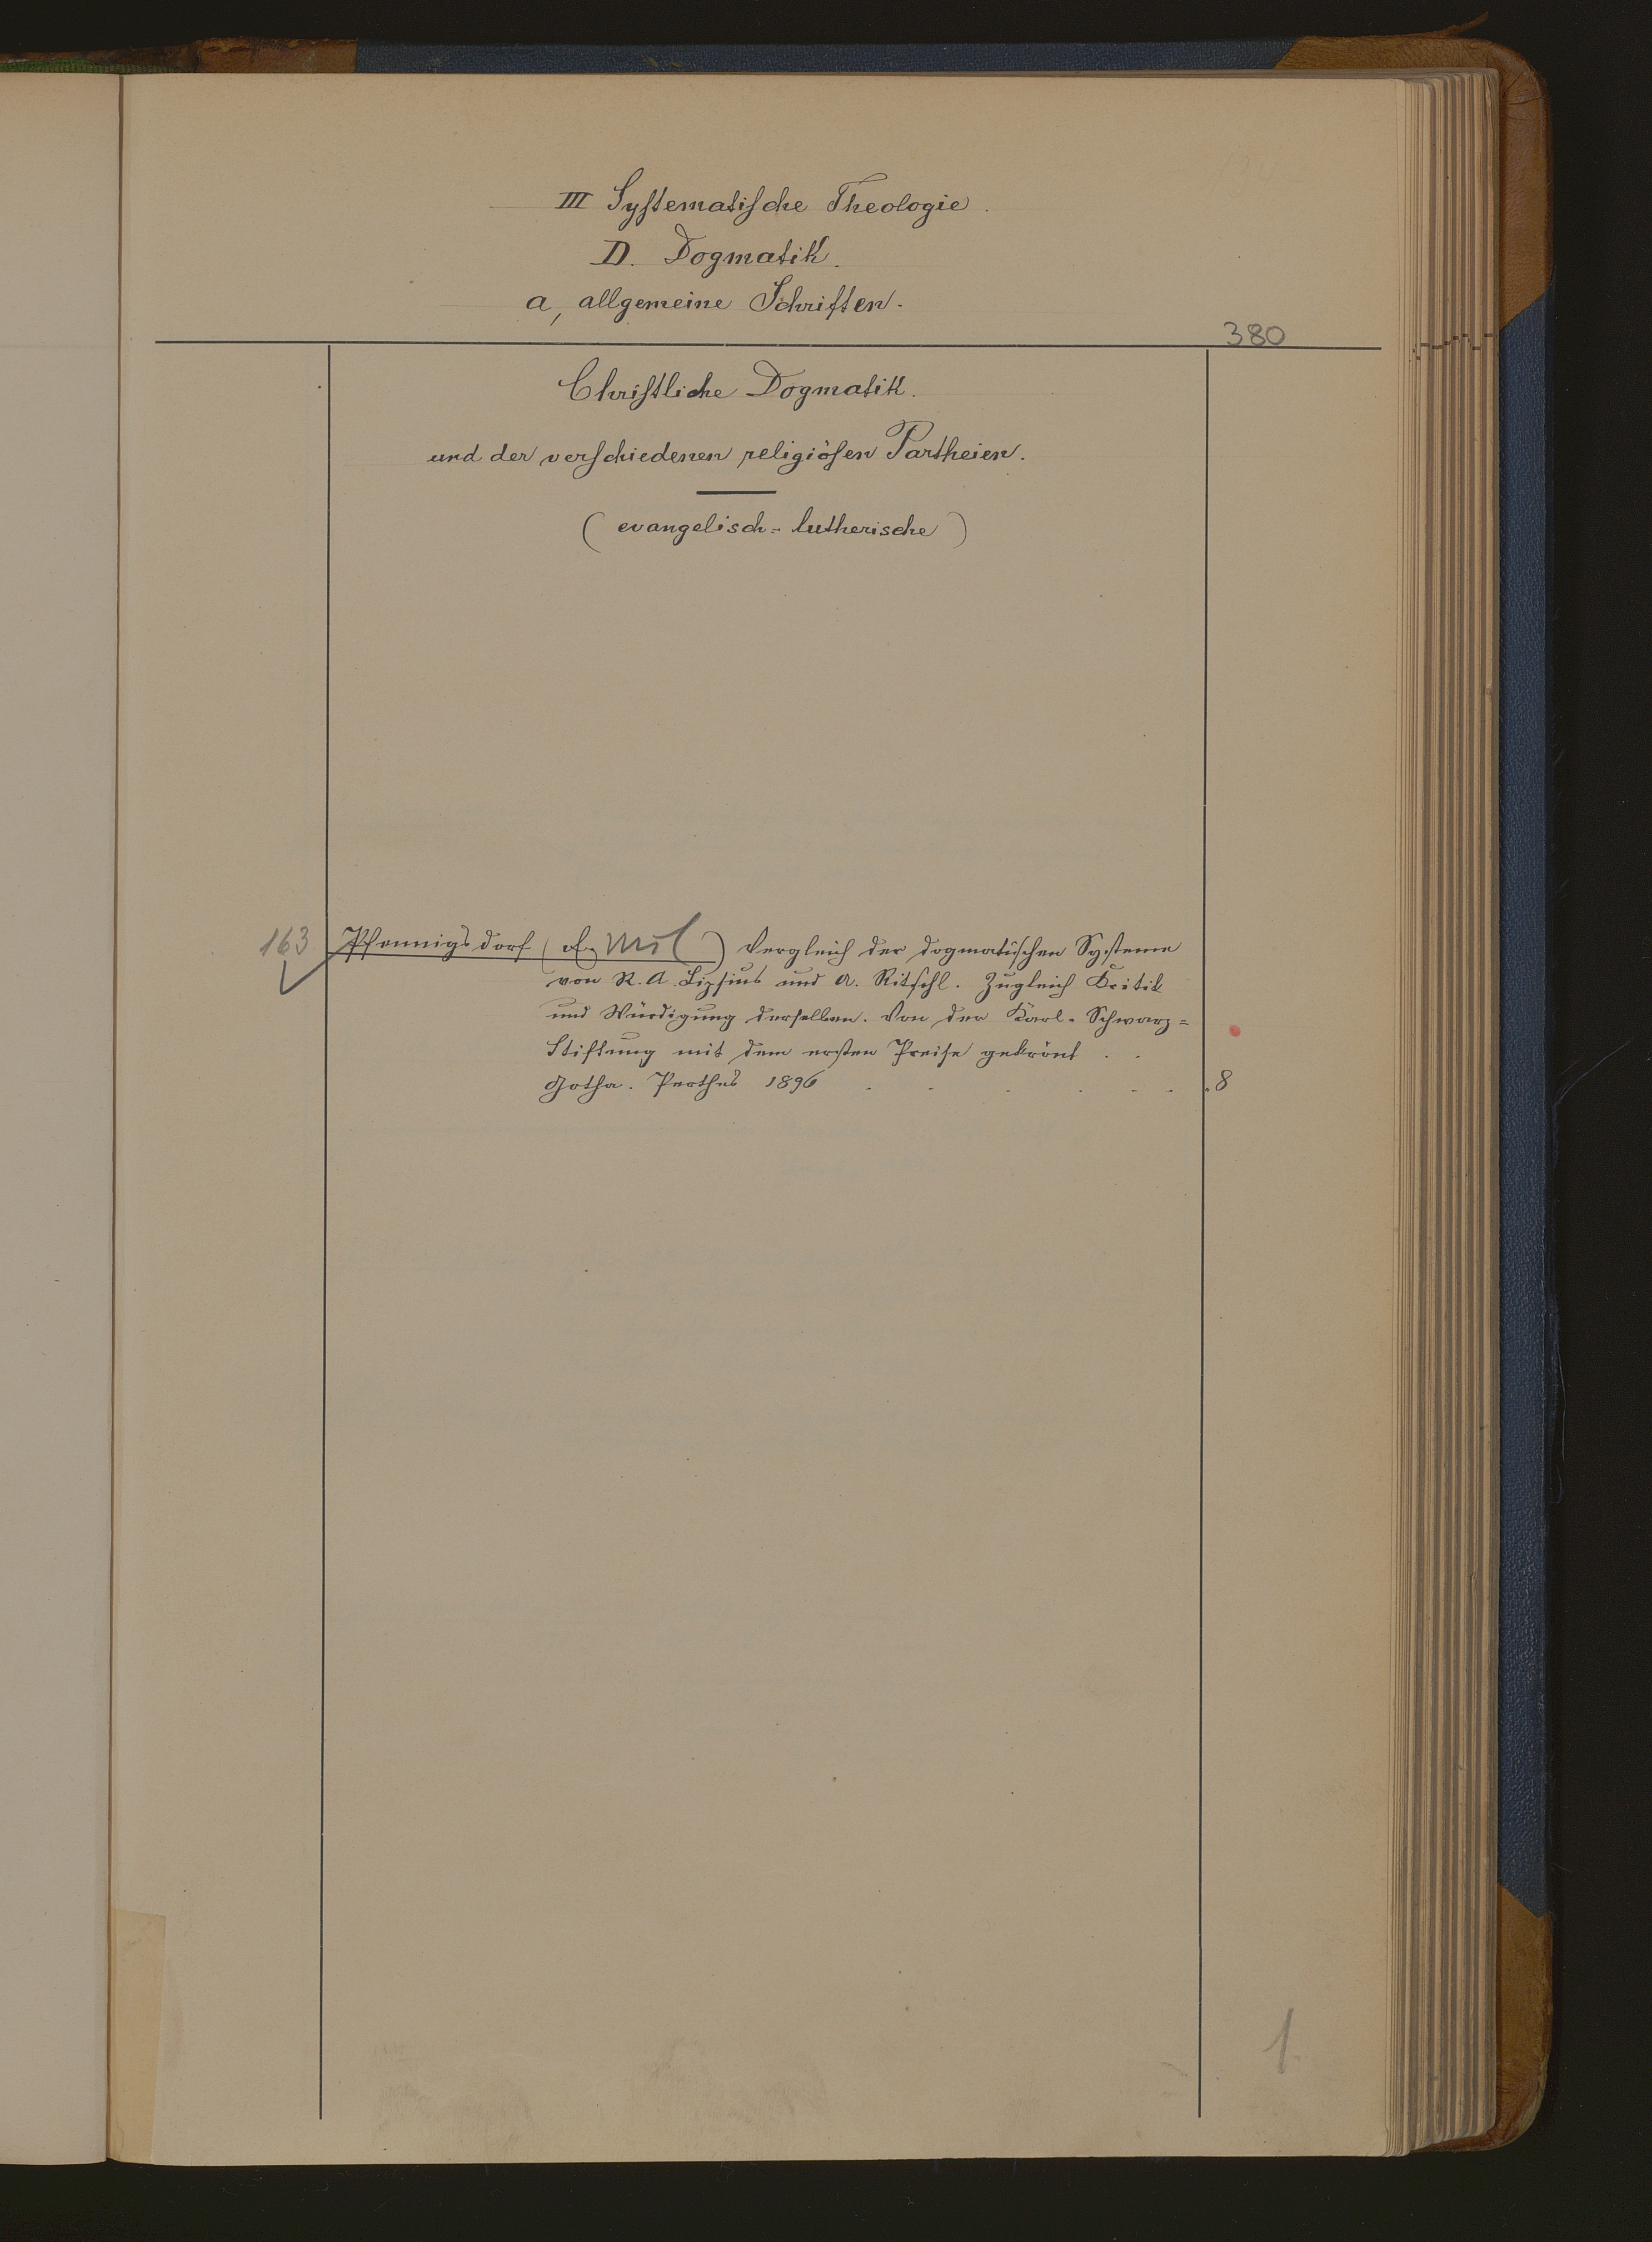 III Systematische Theologie.
D. Dogmatik.
a, allgemeine Schriften.
380
Christliche Dogmatik.
und der verschiedenen religiösen Partheien.
(evangelisch=lutherische)
163 Pfennigsdorf (Emil) Vergleich der dogmatischen Systeme
von R. A. Lipsius und A. Ritschl. Zugleich Kritik
und Würdigung derselben. Von der Karl-Schwarz=
Stiftung mit dem ersten Preise gekrönt . .
Gotha. Perthes 1896 . . . . . . . 8
1